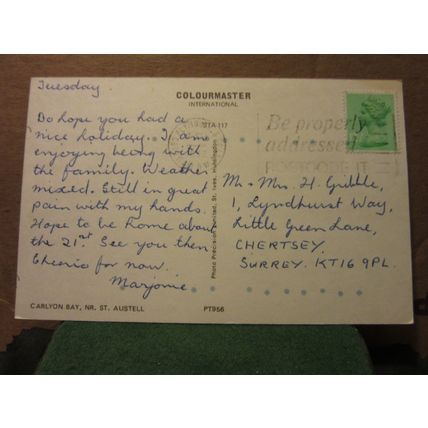 Tuesday.
COLOURMASTER
INTERNATIONAL
Do hope you had a
nice holiday. I am
enjoying being with
the family. Weather
mixed. Still in great
pain with my hands.
Hope to be home about
the 21st. See you then.
Cheerio for now.
Marjorie
Photo Precision Limited, St. Ives, Huntingdon
Be properly
addressed
POSTCODE IT
Mr & Mrs. H. Gribble,
1, Lyndhurst Way,
Little Green Lane,
CHERTSEY.
SURREY. KT16 9PL.
CARLYON BAY, NR. ST. AUSTELL
PT956